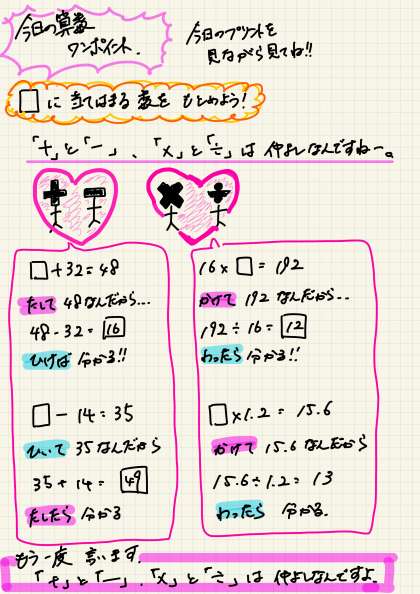 今日の算数
ワンポイント。
今日のプリントを
見ながら見てね!!
□に当てはまる数をもとめよう!
「+」と「-」、「×」と「÷」は仲よしなんですねー。
□+32=48
たして48なんだから...
48-32=16
ひけば分かる!!
□-14=35
ひいて35なんだから
35+14=49
たしたら分かる
16×□=192
かけて192なんだから...
192÷16=12
わったら分かる!!
□×1.2=15.6
かけて15.6なんだから
15.6÷1.2=13
わったら分かる.
もう一度言います。
「+」と「-」、「×」と「÷」は仲よしなんですよ。